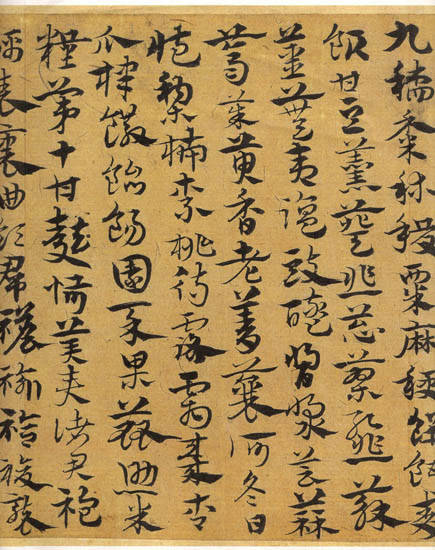 九稻黍秫稷粟麻秔餅餌麥
飯甘豆羹葵韭葱蓼䪥蘇
薑蕪夷鹽豉醯醬漿芸蒜
香老菁蘘何冬日
梨柿柰桃待露霜棗杏
瓜棣饊飴餳園菜果蓏助米
糧第十甘麩恬美奏諸君袍
襦表裏曲領帬襜褕袷複褶